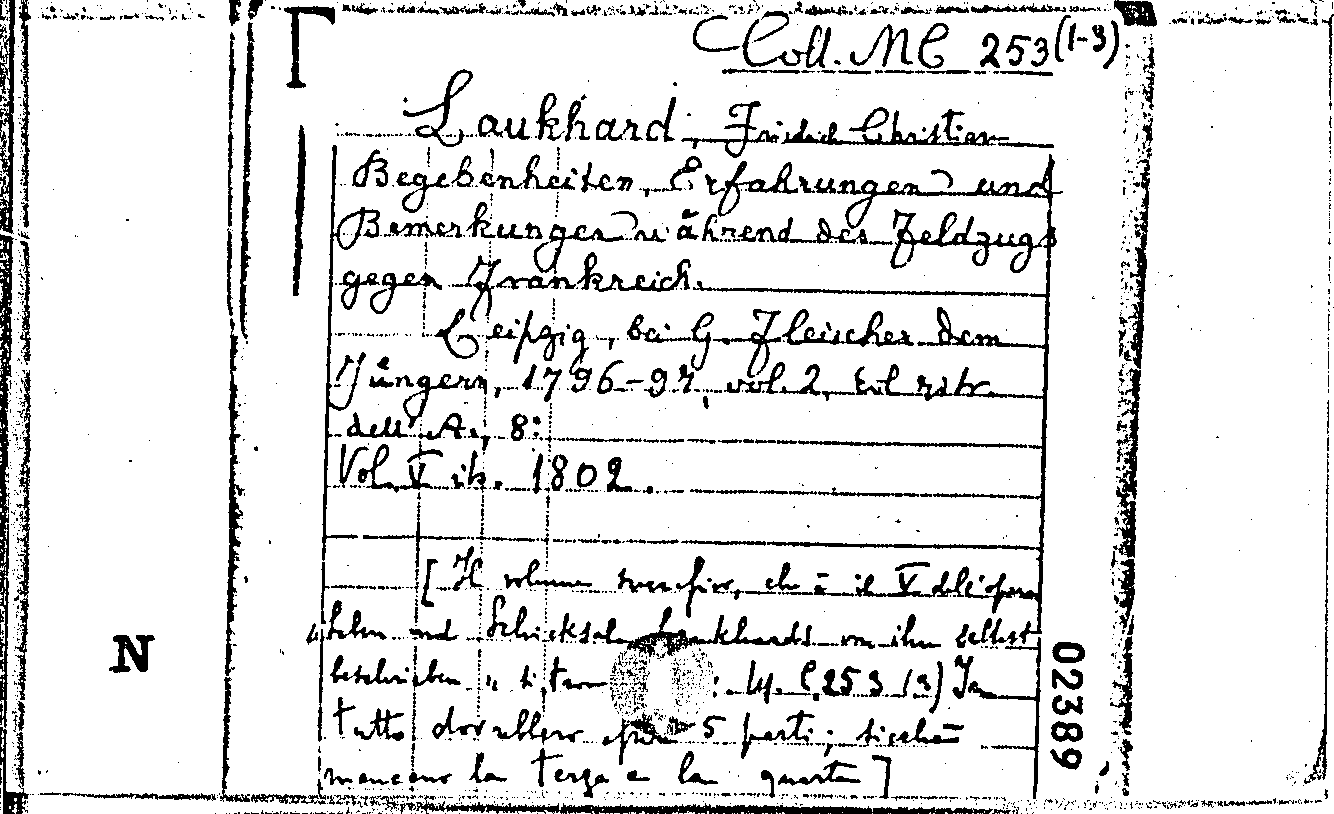 Coll. MC 253 (1-3)
Laukhard, Friedrich Christian
Begebenheiten, Erfahrungen und
Bemerkungen während des Feldzugs
gegen Frankreich.
Leipzig, bei G. Fleischer dem
Jüngern, 1796-97, vol. 2, col ritr.
dell'A., 8:
Vol. V ib. 1802.
[Il volume, che è il V dell'opera
"Leben und Schicksale Laukhards von ihm selbst
beschrieben" : M.C. 253 (3) In
tutto dovrebbero 5 parti; sicché
mancano la terza e la quarta]
N
02389